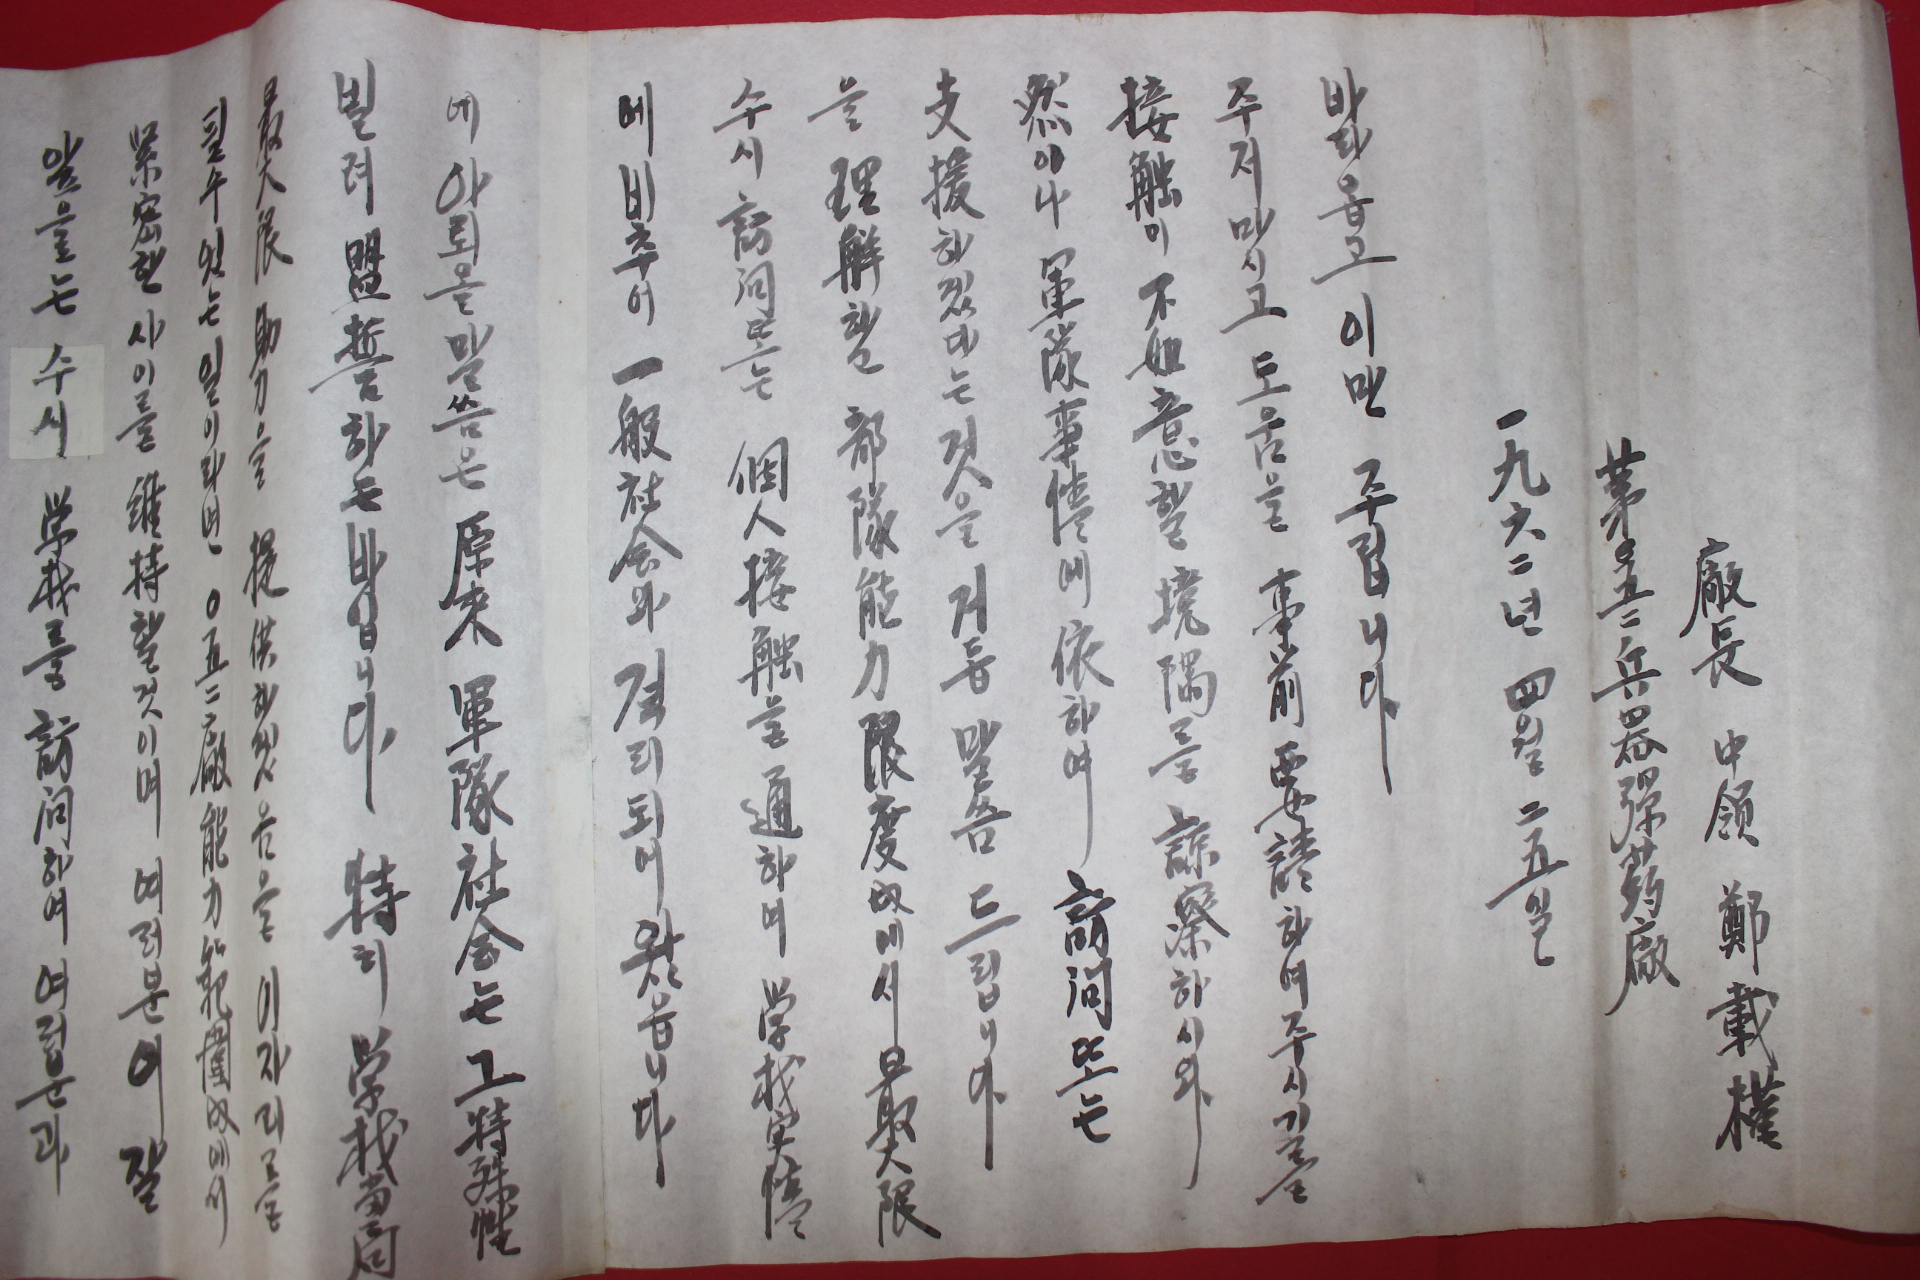 앞을로는 수시 学校를 訪问하여 여러분과
緊密한 사이를 維持할것이며 여러분에 잘
될수있는일이라면 0五二廠能力範圍內에서
最大限 助力을 提供하겠음을 이자리를
빌려 盟誓하는바입니다 特히 学校当局
에 아뢰올말씀은 原來 軍隊社会는 그特殊性
에 비추어 一般社会와 격리되어 왔읍니다
수시 訪问또는 個人接触을 通하여 学校実情
을 理解할 部隊能力限度內에서 最大限
支援하겠다는것을 거듭 말씀드립니다
然이나 軍隊事情에 依하여 訪问또는
接触이 不如意할 境隅를 諒察하시와
주저마시고 도움을 事前 要請하여주시기를
바라옵고 이만 주립니다
一九六二년 四월 二五일
第0五二兵器彈葯廠
廠長 中領 鄭載樸